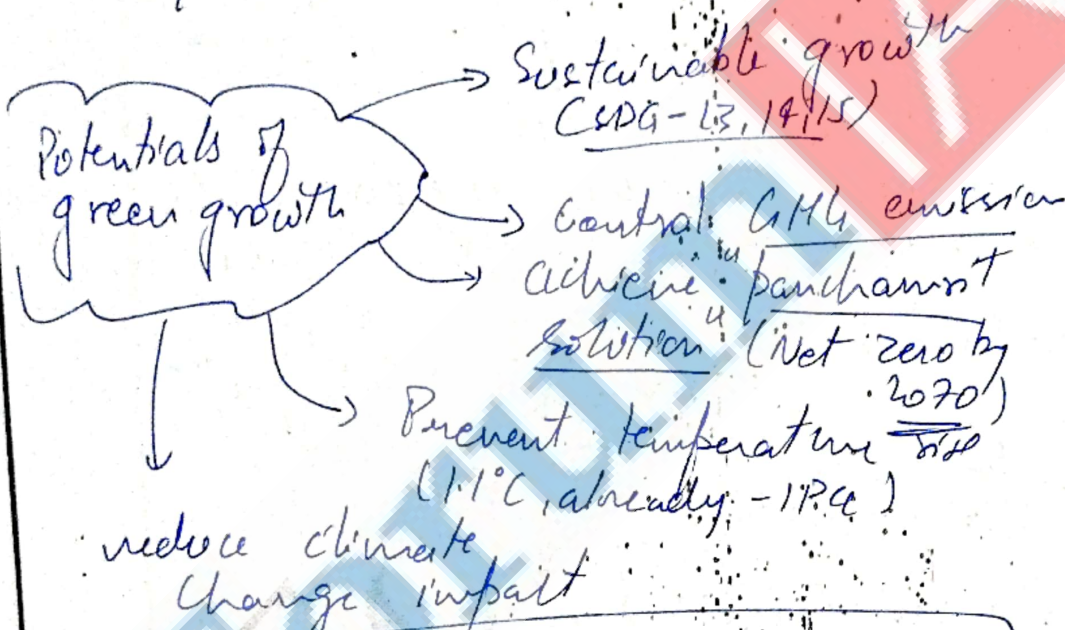 Potentials of
green growth
Sustainable growth
(SDG-13, 14, 15)
Control GHG emission
achieve "panchamrit
solution" (Net zero by
2070)
Prevent temperature rise
(1.1°C, already - IPCC)
reduce climate
change impact